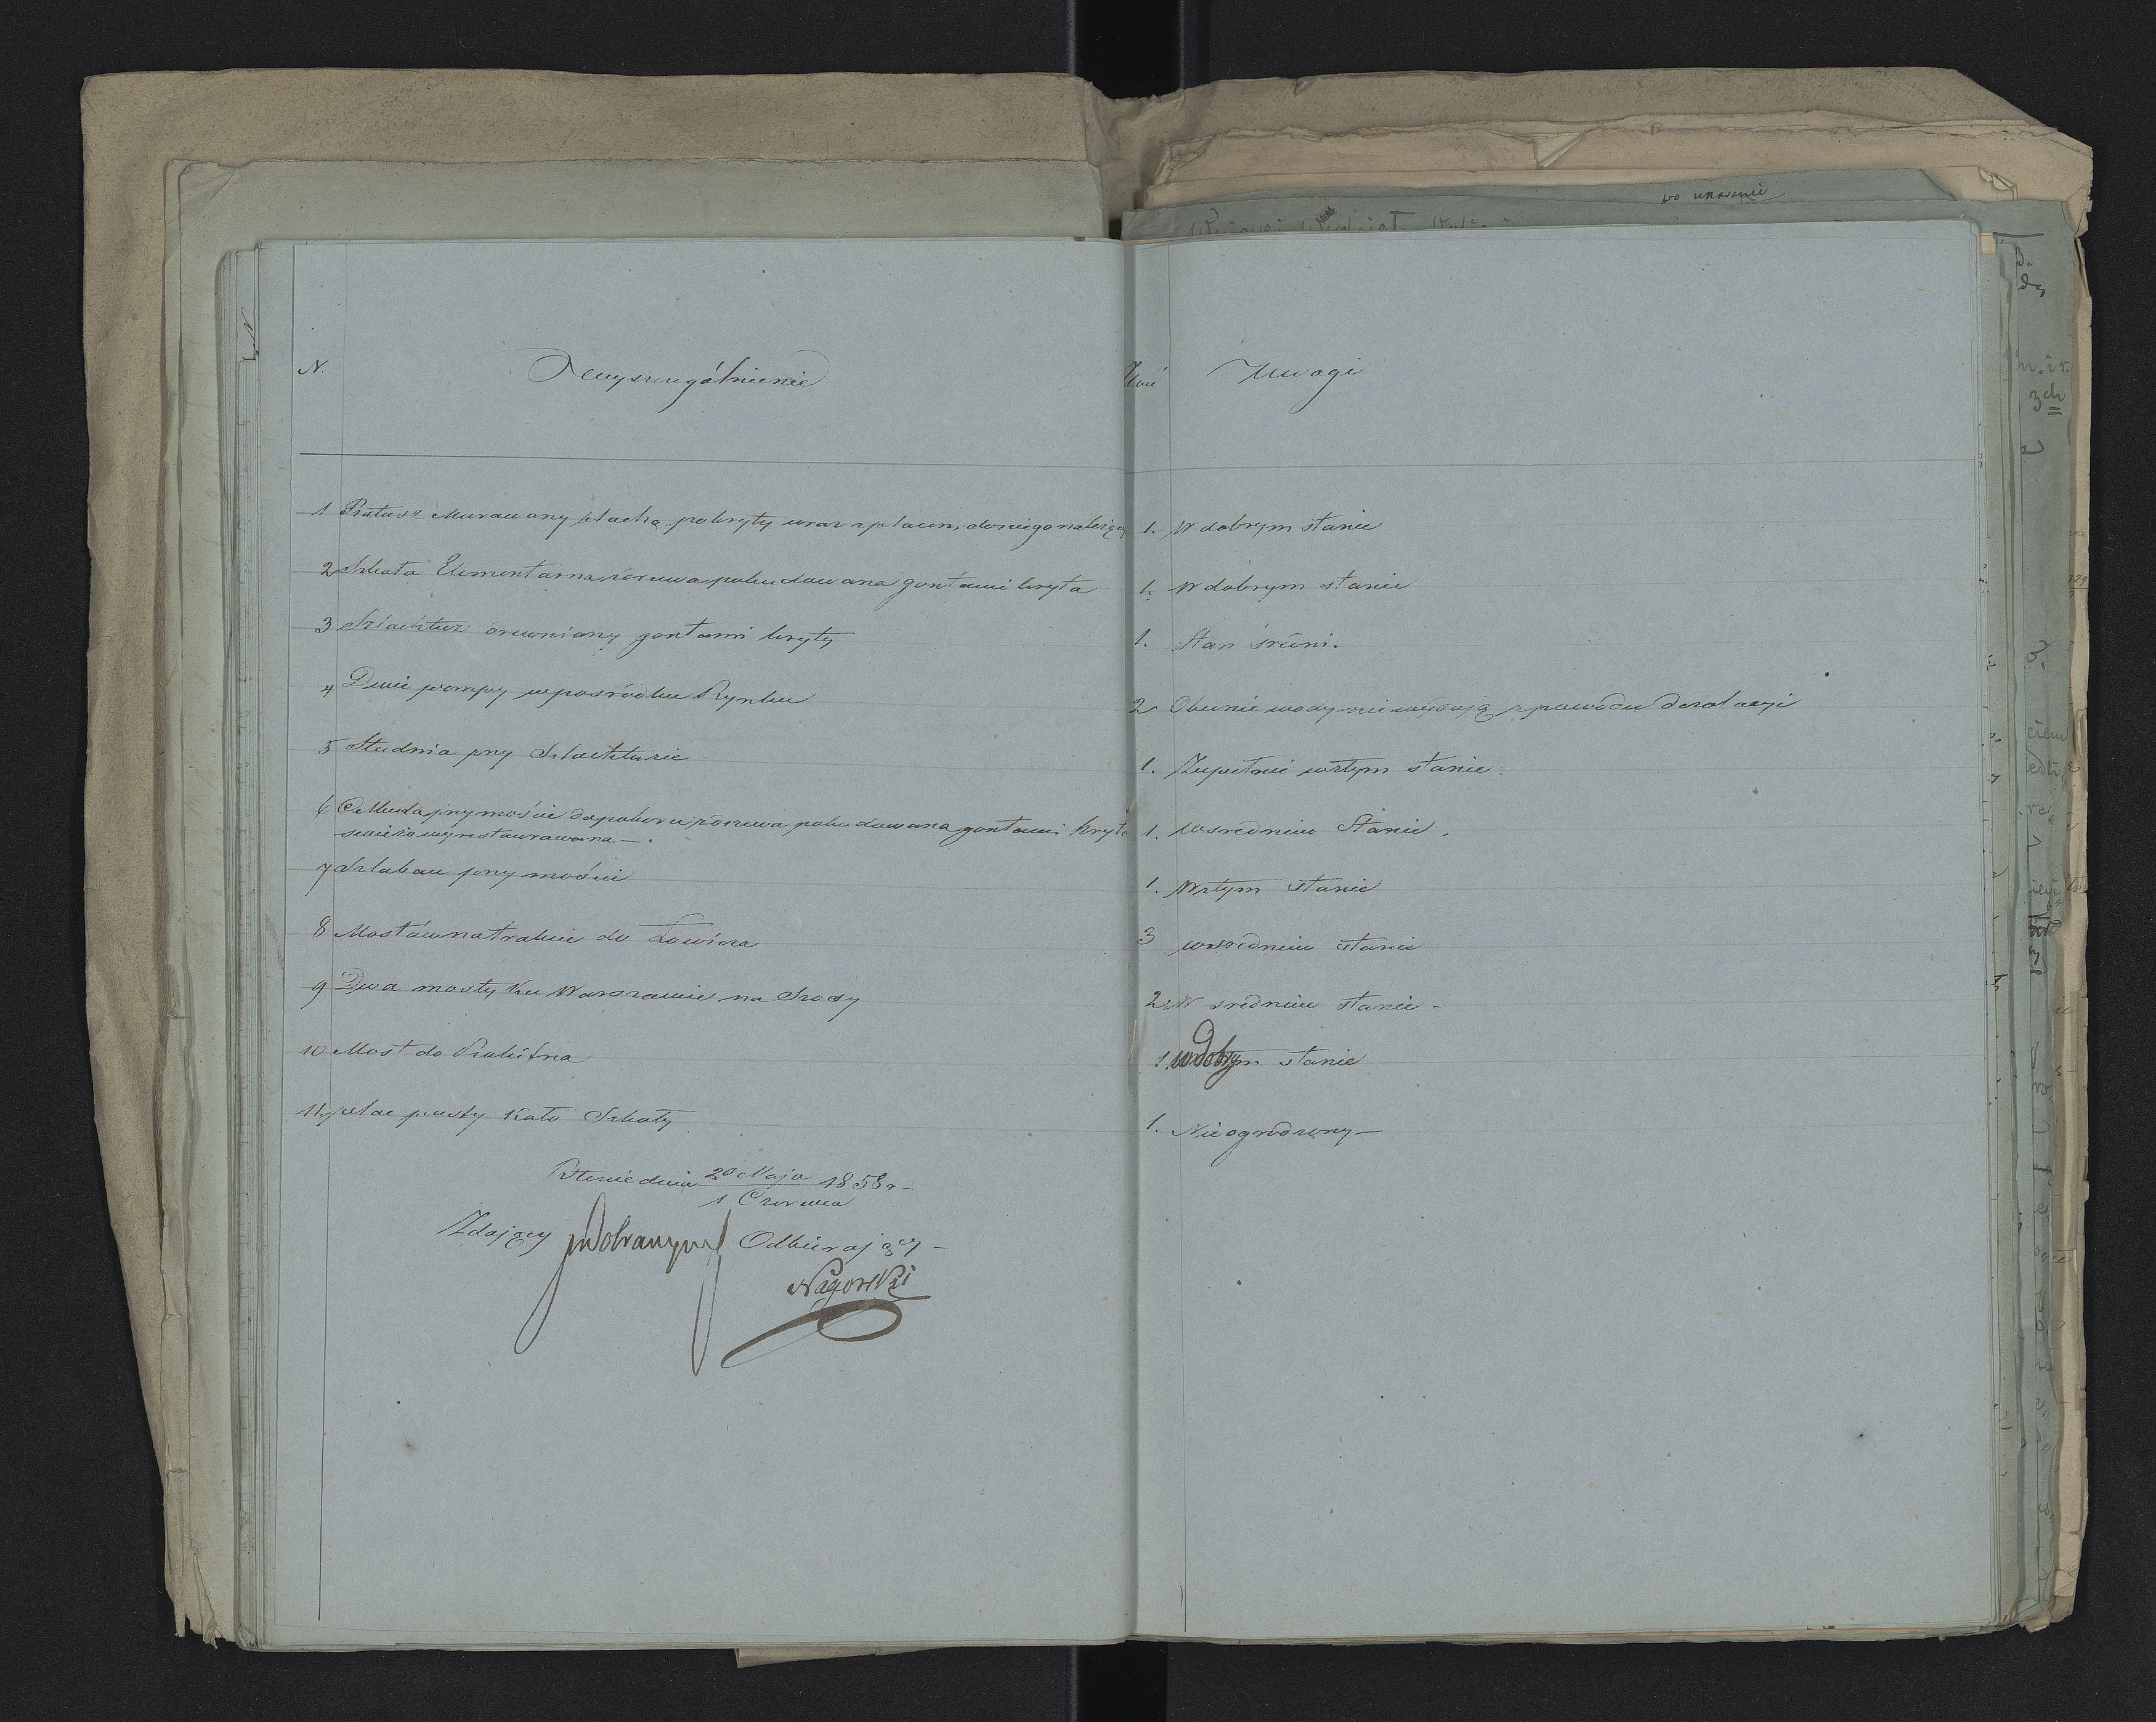 N. Wyszczególnienie Ilość Uwagi
1 Ratusz Murowany blachą pokryty wraz z placem do niego należący 1. W dobrym stanie
2 Szkoła Elementarna zdrzewa pobudowana gontami kryta 1. W dobrym stanie
3 Szlachtuz drewniany gontami kryty 1. Stan średni.
4 Dwie pompy wpośrodku Rynku 2 Obecnie wody nie wydają z powodu dezolacyi
5 Studnia przy Szlachtuzie 1. Zupełnie wzłym stanie
6 Buda przy moście do poboru zdrzewa pobudowana gontami kryta 1. wśrednim Stanie.
świeżo wyrestaurowana —.
7 Szlaban przy moście 1. Wzłym stanie
8 Mostów na trakcie do Łowicza 3 wśrednim stanie
9 Dwa mosty ku Warszawie na Szosy 2 W średnim stanie -
10 Most do 1 wdobrym stanie
11 plac pusty koło Szkoły 1. Nieogrodzony —
dnia 20 Maja 1858 r -
1 Czerwca
Zdający Odbierający -
Nagorski